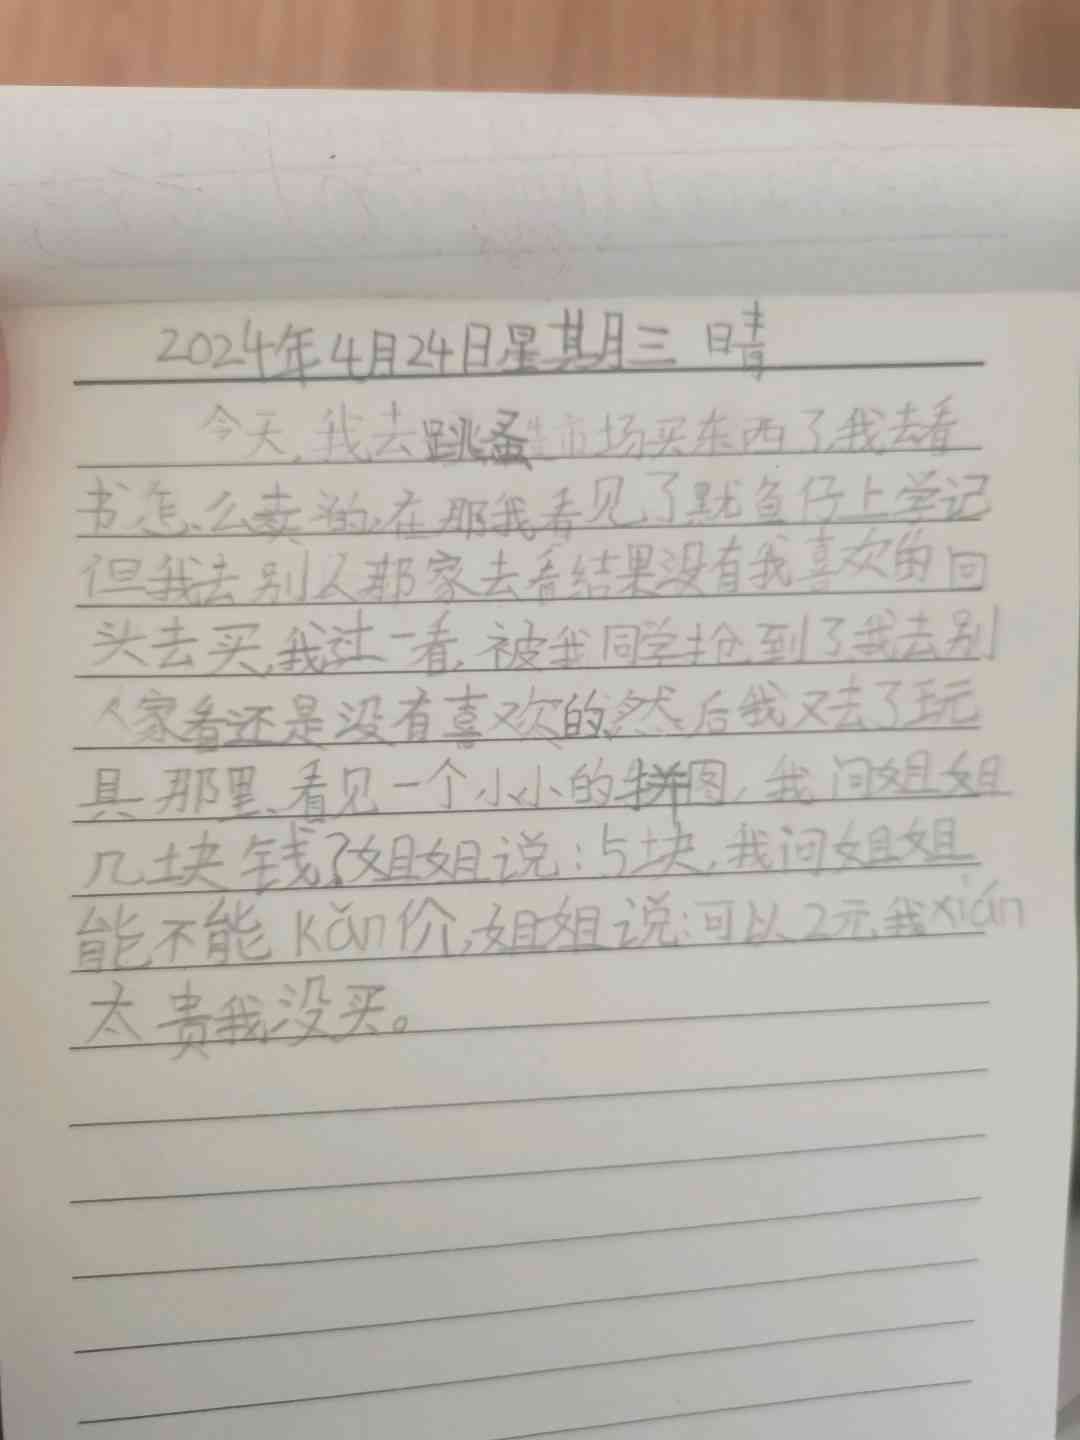 2024年4月24日星其月三 晴
今天,我去跳蚤市场买东西了,我去看
书怎么卖的,在那我看见了默鱼仔上学记
但我去别人那家去看结果没有我喜欢的回
头去买,我过一看,被我同学抢到了,我去别
人家看还是没有喜欢的,然后我又去了玩
具那里,看见一个小小的拼图,我问姐姐
几块钱?姐姐说:5块,我问姐姐
能不能kǎn价,姐姐说:可以2元,我xián
太贵我没买。